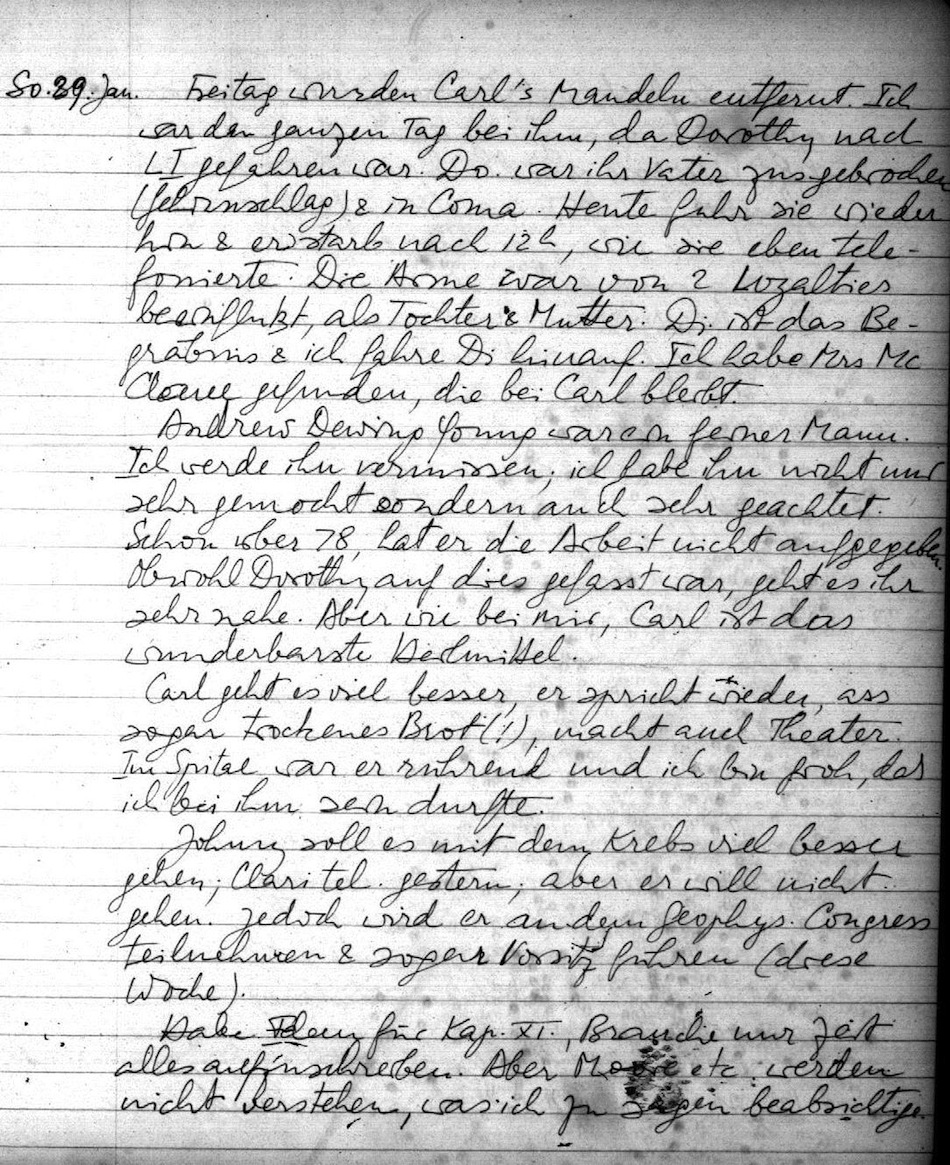 So. 29. Jan. Freitag wurden Carl's Mandeln entfernt. Ich
war den ganzen Tag bei ihm, da Dorothy nach
LI gefahren war. Do. war ihr Vater zusgebrochen
(Gehirnschlag) & in Coma. Heute fuhr sie wieder
hin & er starb nach 12h, wie sie eben tele-
fonierte. Die Arme war von 2 Loyalties
beeinflusst, als Tochter & Mutter. Di. ist das Be-
gräbnis & ich fahre Di hinauf. Ich habe Mrs Mc
gefunden, die bei Carl bleibt.
Andrew Dewing Young war ein feiner Mann.
Ich werde ihn vermissen; ich habe ihn nicht nur
sehr gemocht sondern auch sehr geachtet.
Schon über 78, hat er die Arbeit nicht aufgegeben.
Obwohl Dorothy auf dies gefasst war, geht es ihr
sehr nahe. Aber wie bei mir, Carl ist das
wunderbarste Heilmittel.
Carl geht es viel besser, er spricht wieder, ass
sogar trockenes Brot (!), macht auch Theater.
Im Spital war er rührend und ich bin froh, das
ich bei ihm sein durfte.
Johny soll es mit dem Krebs viel besser
gehen; Clari tel. gestern; aber er will nicht
gehen. Jedoch wird er an dem Geophys. Congress
teilnehmen & sogar Vorsitz führen (diese
Woche).
Habe Ideen für Kap. XI., Brauche nur Zeit
alles aufzuschreiben. Aber Moore etc werden
nicht verstehen, was ich zu sagen beabsichtige.